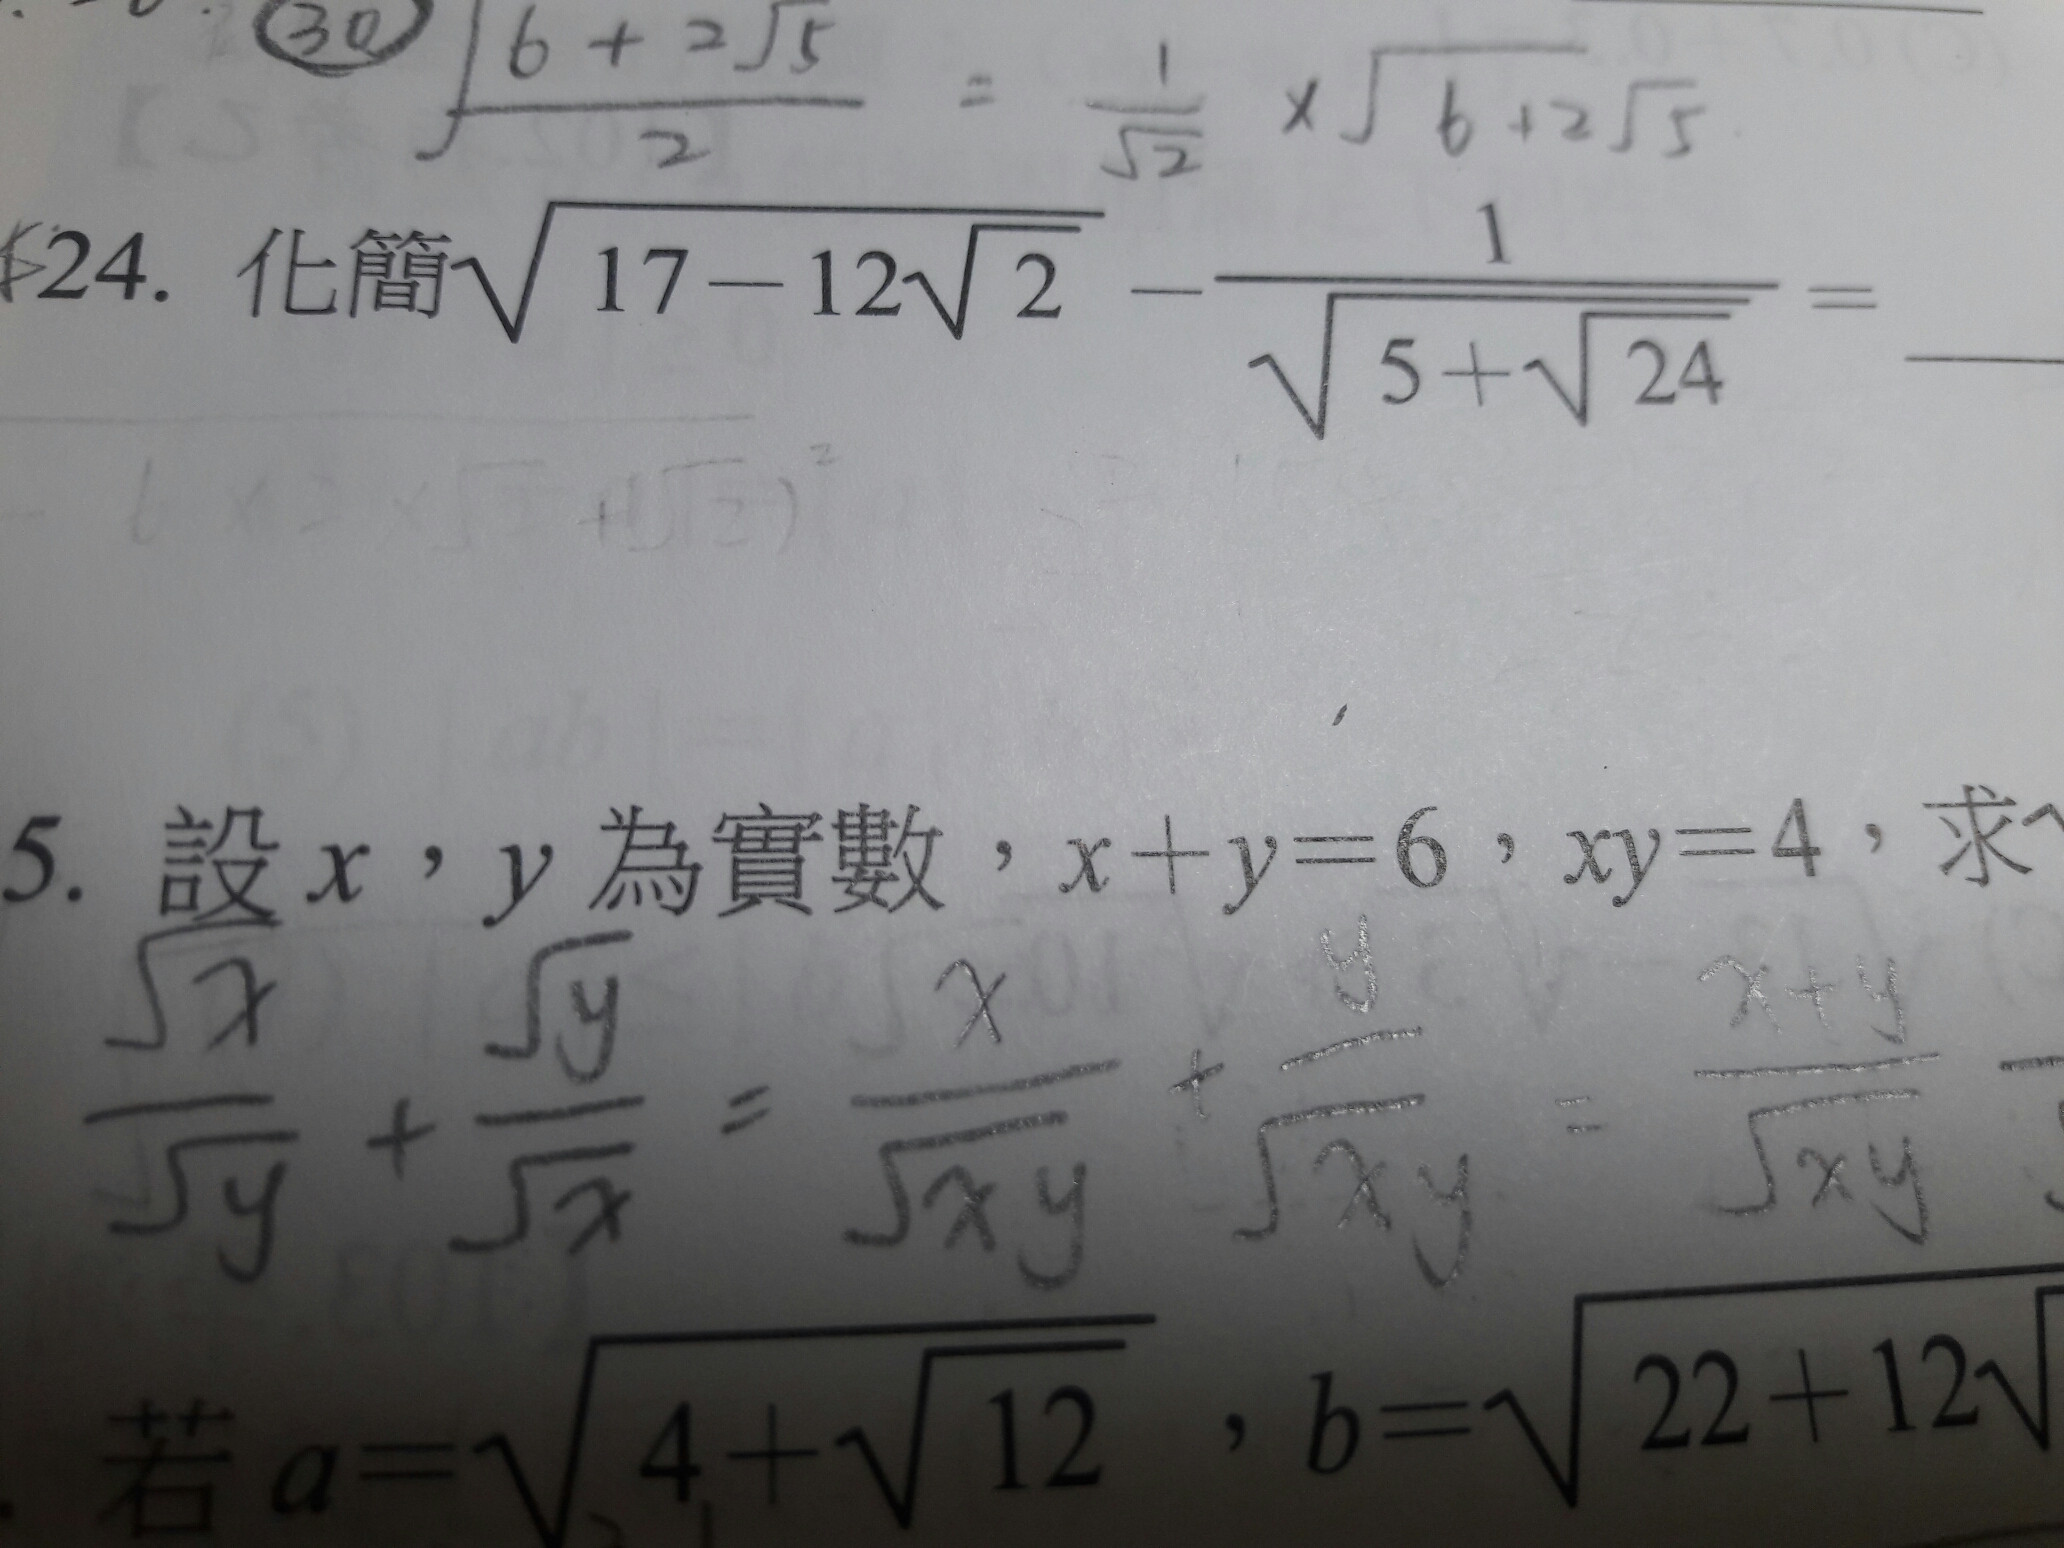 ㉚ √((6+2√5)/2) = 1/√2 ×√(6+2√5)
24. 化簡√(17－12√2)－1/√(5＋√24)＝
5. 設 x，y 為實數，x＋y＝6，xy＝4，求
√x/√y + √y/√x = x/√xy + y/√xy = x+y/√xy
若 a＝√(4＋√12)，b＝√(22＋12√